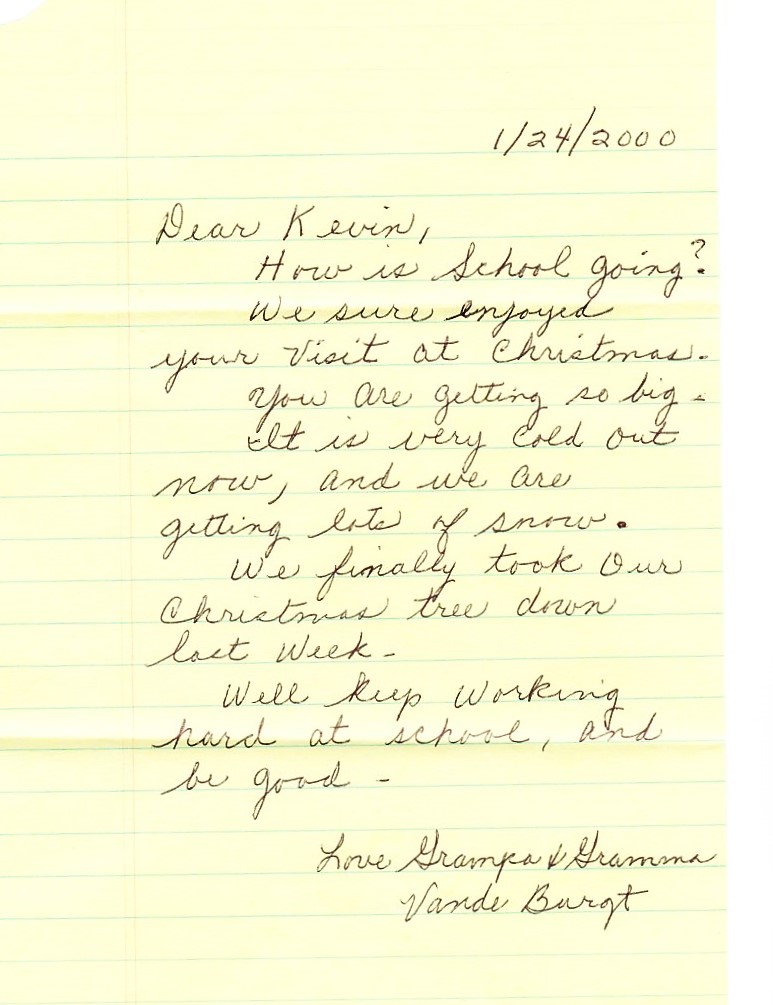 1/24/2000
Dear Kevin,
How is School going?
We sure enjoyed
your Visit at Christmas.
You are getting so big -
It is very cold out
now, and we are
getting lots of snow.
We finally took Our
Christmas tree down
last Week -
Well keep Working
hard at school, and
be good -
Love Grampa & Gramma
Vande Burgt